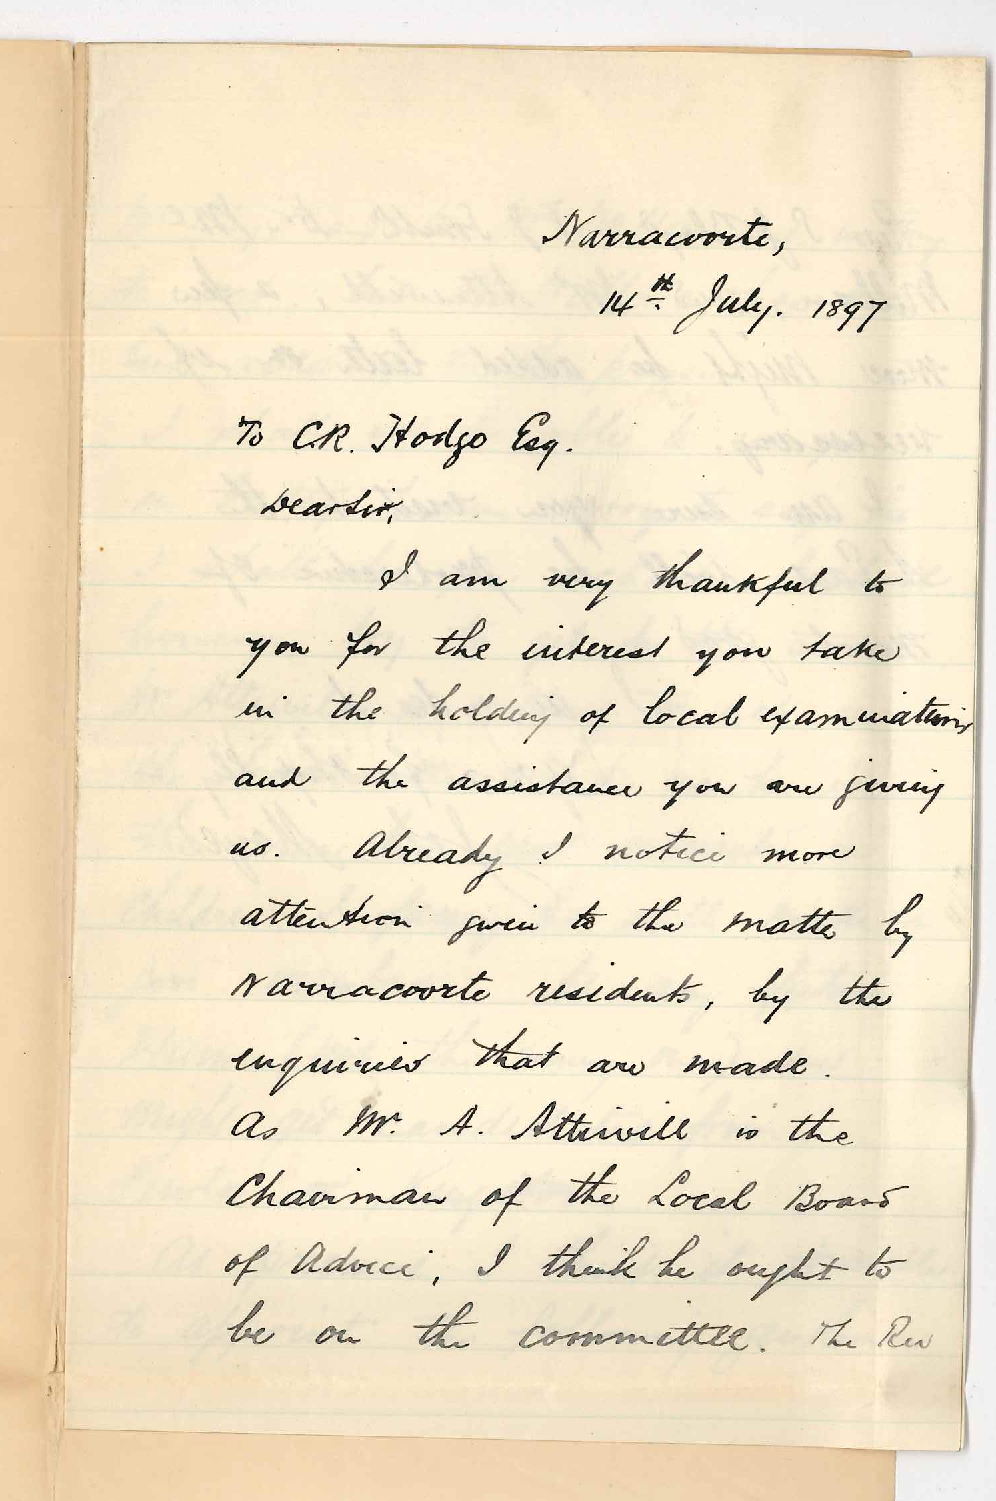 Narracoorte,
14th July. 1897
To C.R. Hodge Esq.
Dear Sir,
I am very thankful to
you for the interest you take
in the holding of local examinations
and the assistance you are giving
us. Already I notice more
attention given to the matter by
Narracoorte residents, by the
enquiries that are made.
As Mr. A. Attiwill is the
Chairman of the Local Board
of Advice, I think he ought to
be on the committee. The Rev